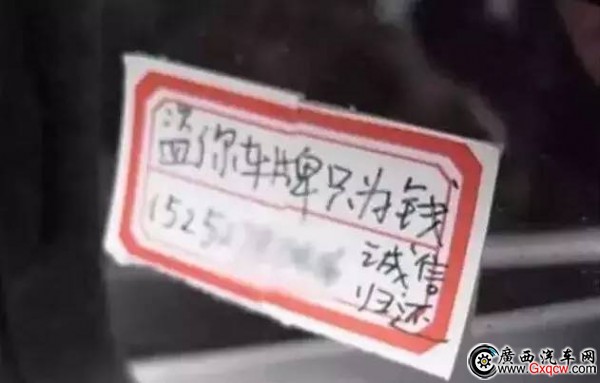 盗你车牌只为钱
1525
诚信
归还
廣西汽车网
www.Gxqcw.com